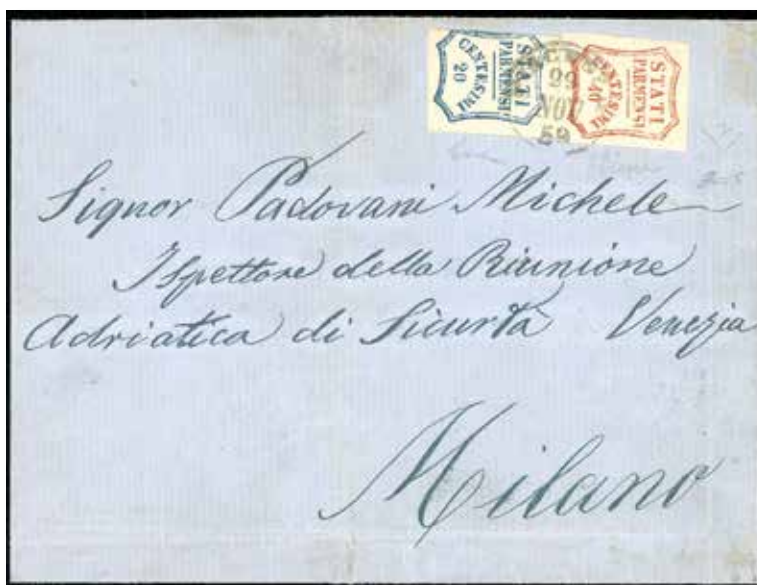 STATI
PARMENSI
CENTESIMI
20
29
NOV
59
STATI
PARMENSI
CENTESIMI
40
Signor Padovani Michele
Ispettore della Riunione
Adriatica di Sicurtà Venezia
Milano